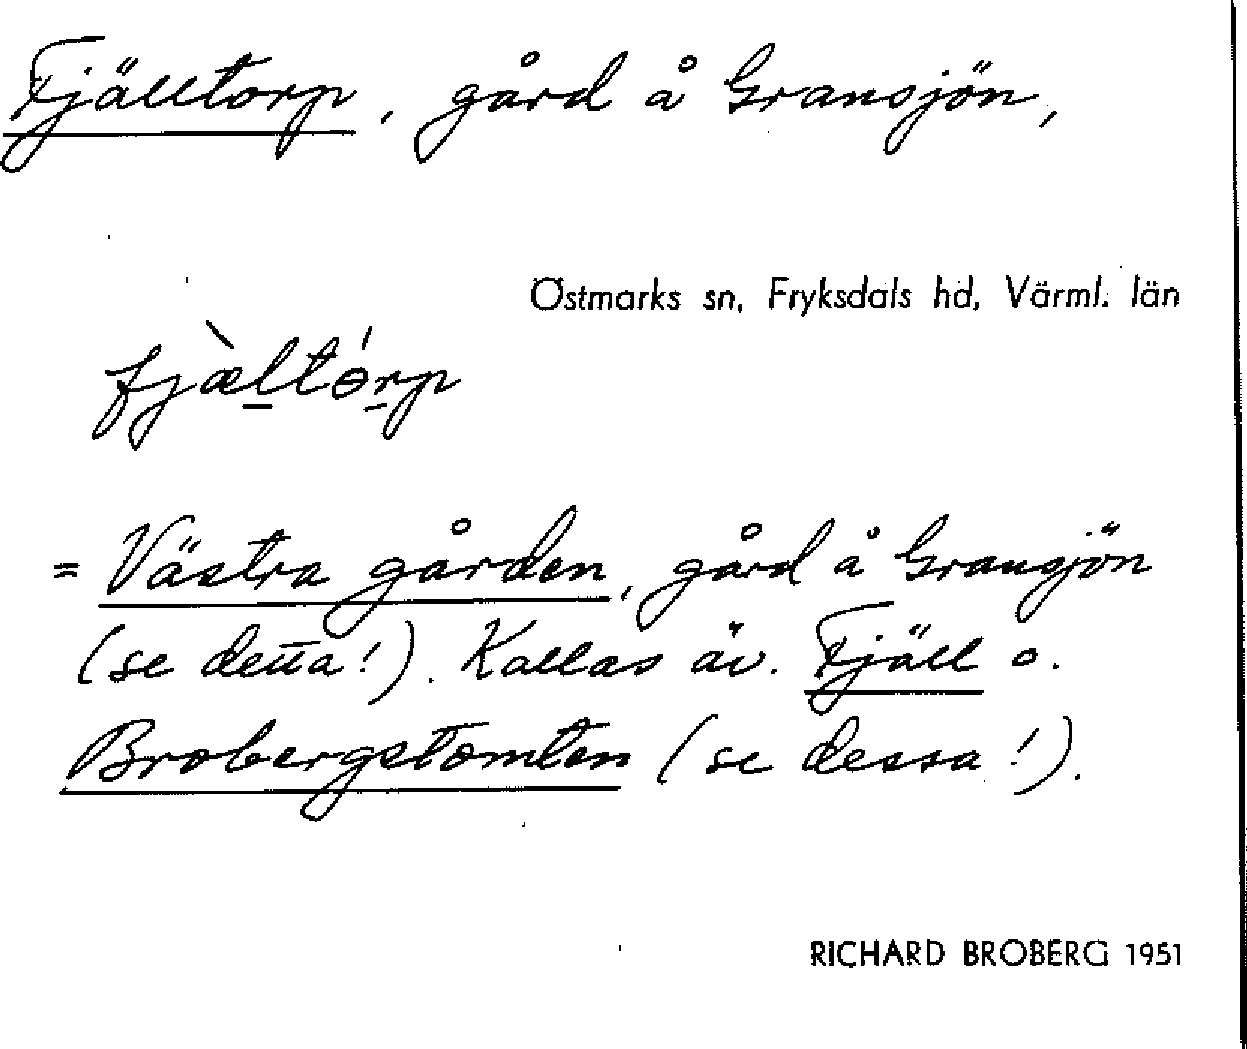 Fjälltorp, gård å Gransjön,
Östmarks sn, Fryksdals hd, Värml. län
fjæ̀ltɵ́rp
= Västra gården, gård å Gransjön
(se detta!). Kallas äv. Fjäll o.
Brobergstomten (se dessa!).
RICHARD BROBERG 1951